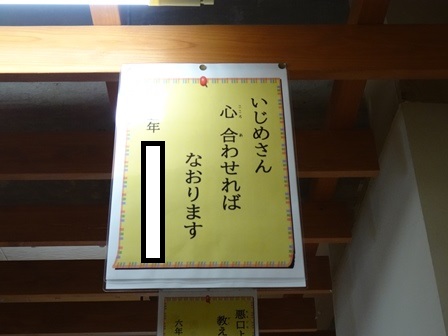 いじめさん
心 合わせれば
なおります
年
悪口
教え
六年